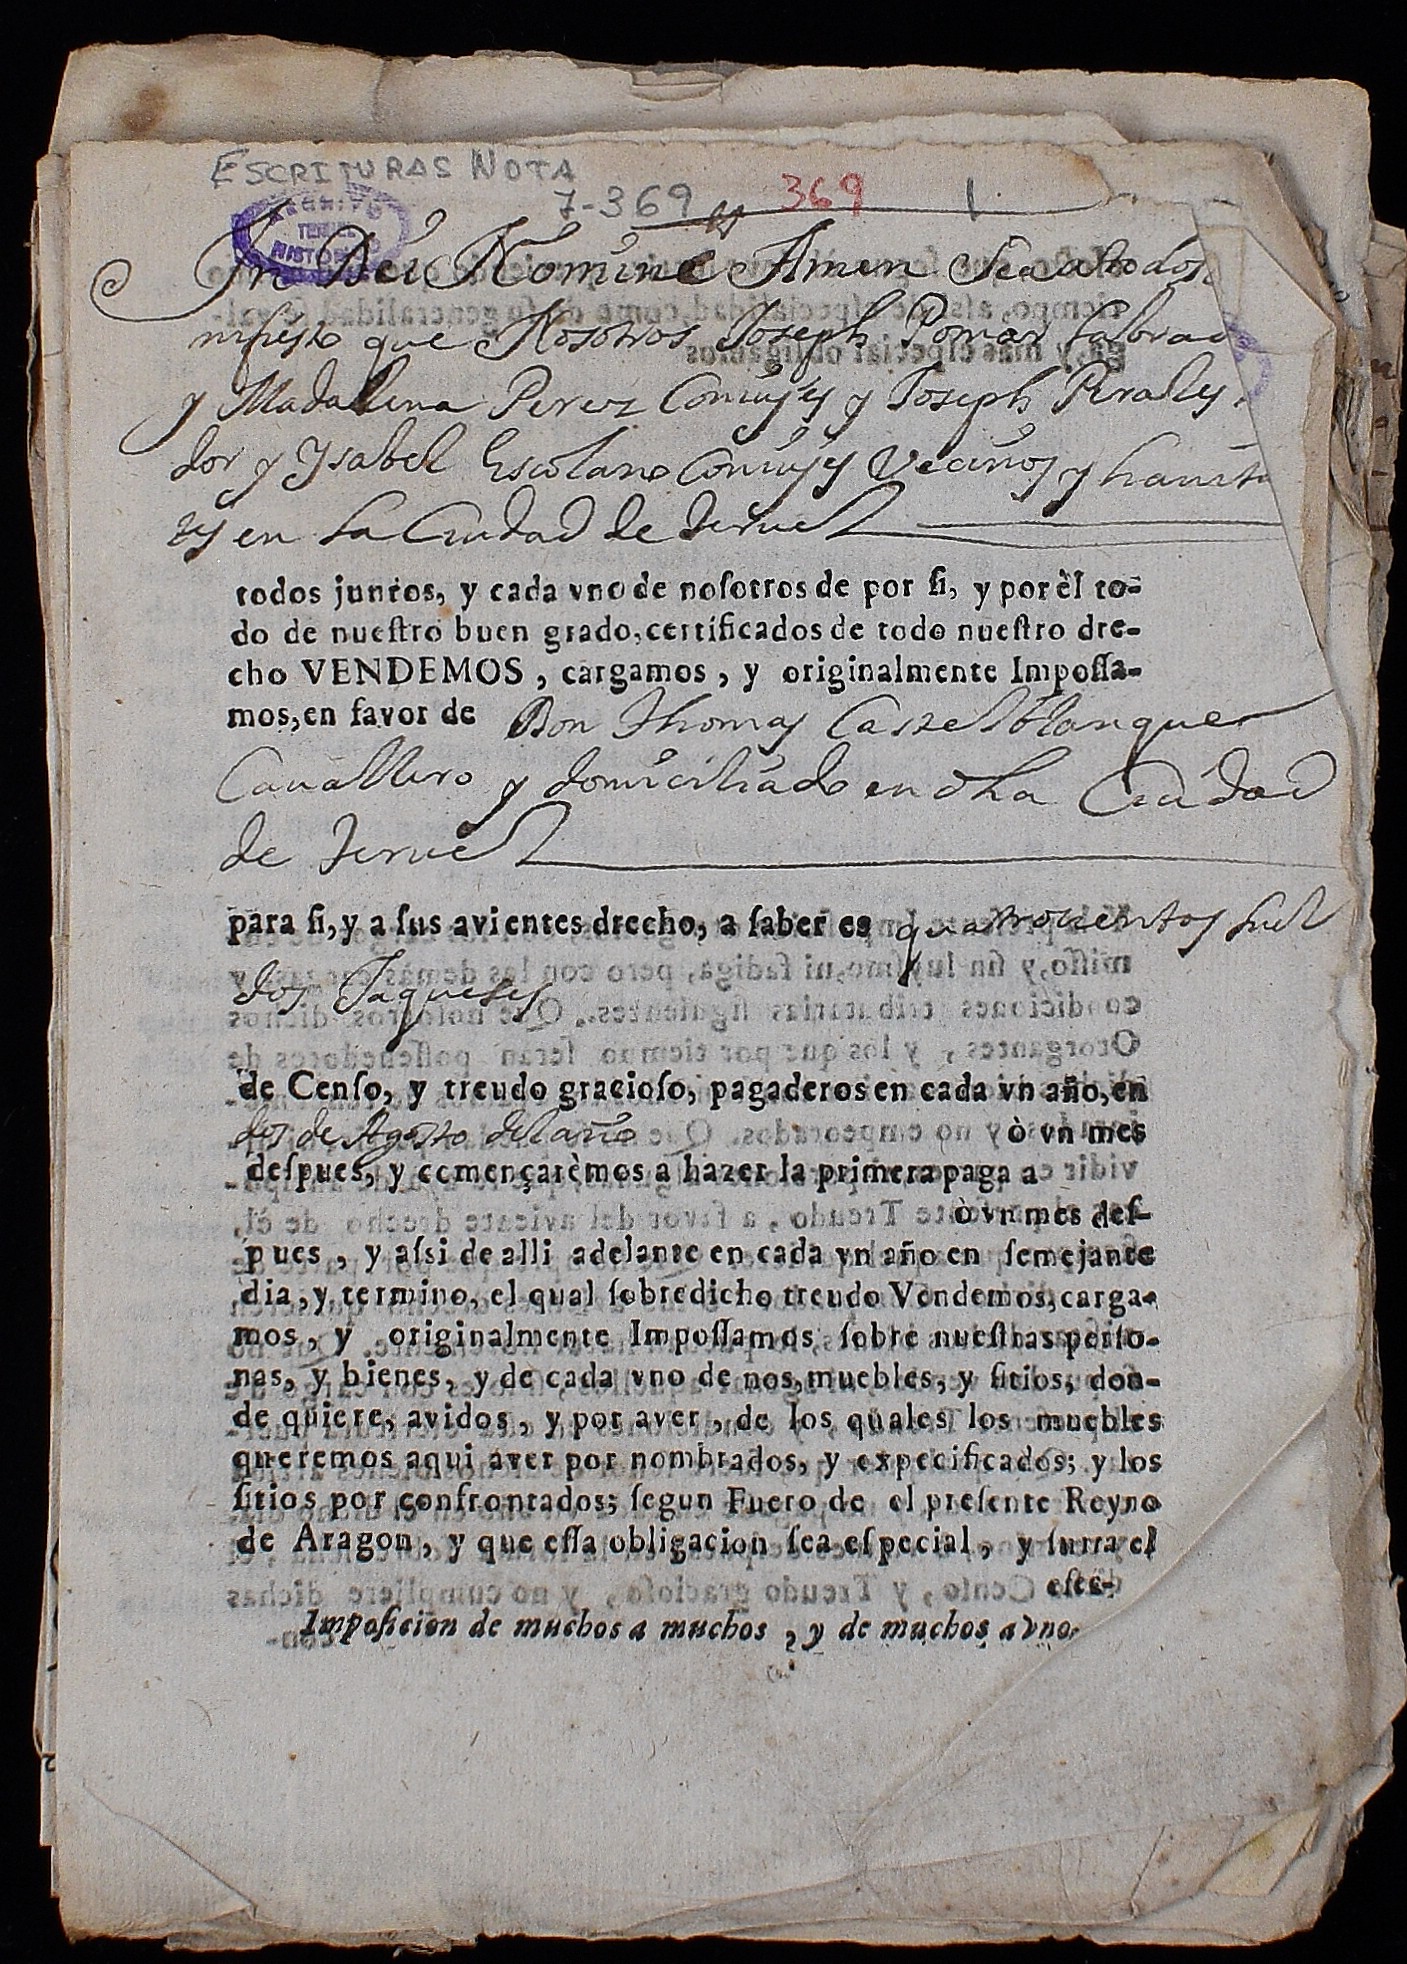 ESCRITURAS NOTA
7-369 369 1
ARCHIVO
TERUEL
HISTORICO
In Dei Nomine Amen Sea a todos
nifiesto que Nosotros Joseph Pomar labrad
y Madalena Perez Conujes y Joseph Perales
dor y Ysabel Escolano Conujes Vecinos y havita
res en la Ciudad de Teruel
todos juntos, y cada vno de nosotros de por si, y por èl to-
do de nuestro buen grado, certificados de todo nuestro dre-
cho VENDEMOS, cargamos, y originalmente Impossa-
mos, en favor de Don Thomas Castelblanque
Cavallero y domiciliado en dha Ciudad
de Teruel
para si, y a sus avientes drecho, a saber es quatrocientos suel
dos Jaqueses
de Censo, y treudo gracioso, pagaderos en cada vn año, en
dos de Agosto del año ò vn mes
despues, y començarèmos a hazer la primera paga a
ò vn mes des-
pues, y assi de alli adelante en cada vn año en semejante
dia, y termino, el qual sobredicho treudo Vendemos, carga-
mos, y originalmente Impossamos, sobre nuestras perso-
nas, y bienes, y de cada vno de nos, muebles, y sitios, don-
de quiere, avidos, y por aver, de los quales los muebles
queremos aqui aver por nombrados, y expecificados; y los
sitios por confrontados; segun Fuero de el presente Reyno
de Aragon, y que essa obligacion sea especial, y surta el
efec-
Imposicion de muchos a muchos, y de muchos a vno.